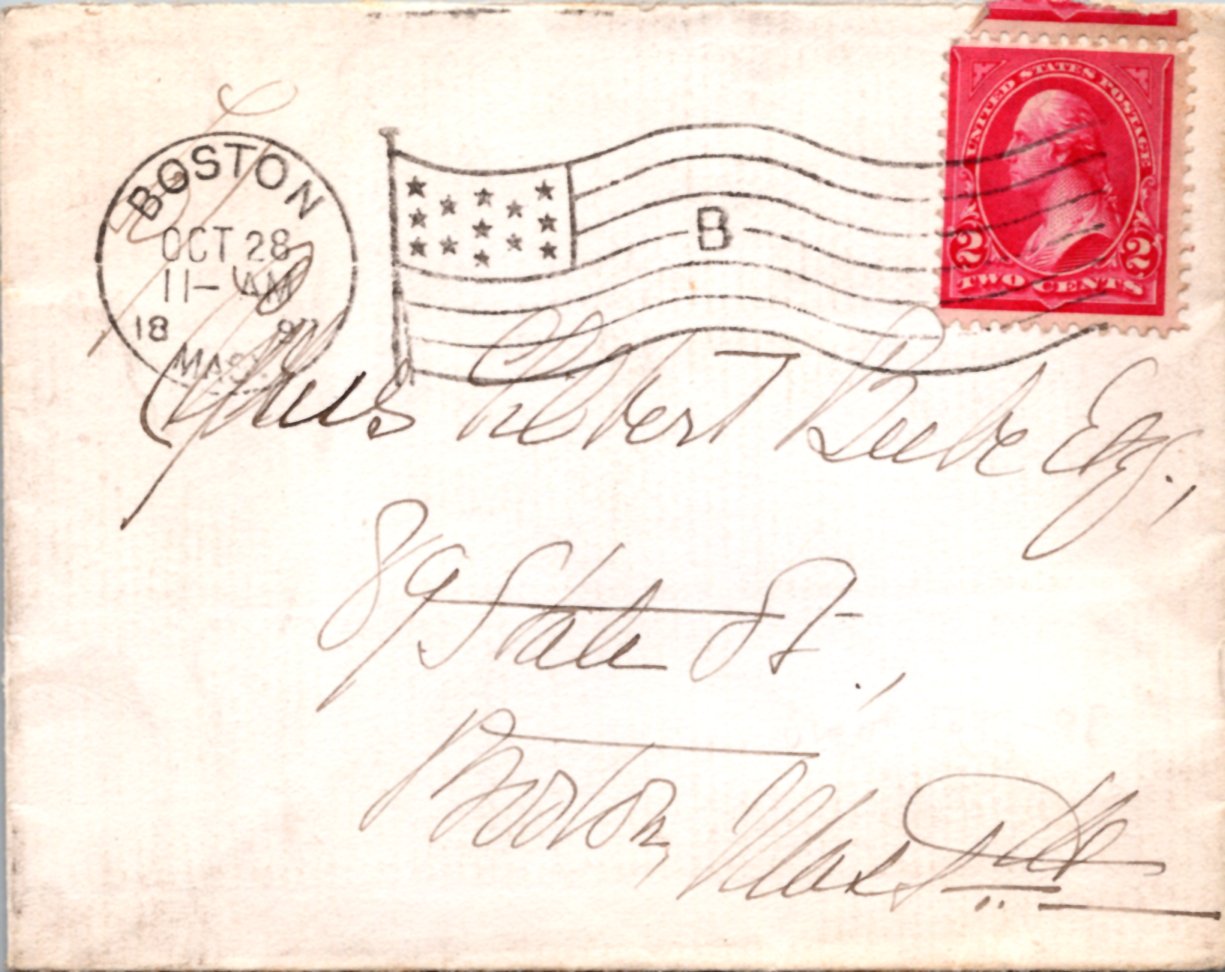 BOSTON
OCT 28
11- AM
18 97
MASS
B
UNITED STATES POSTAGE
2 2
TWO CENTS
Albert Beebe Esq.,
89 State St.,
Boston, Mass